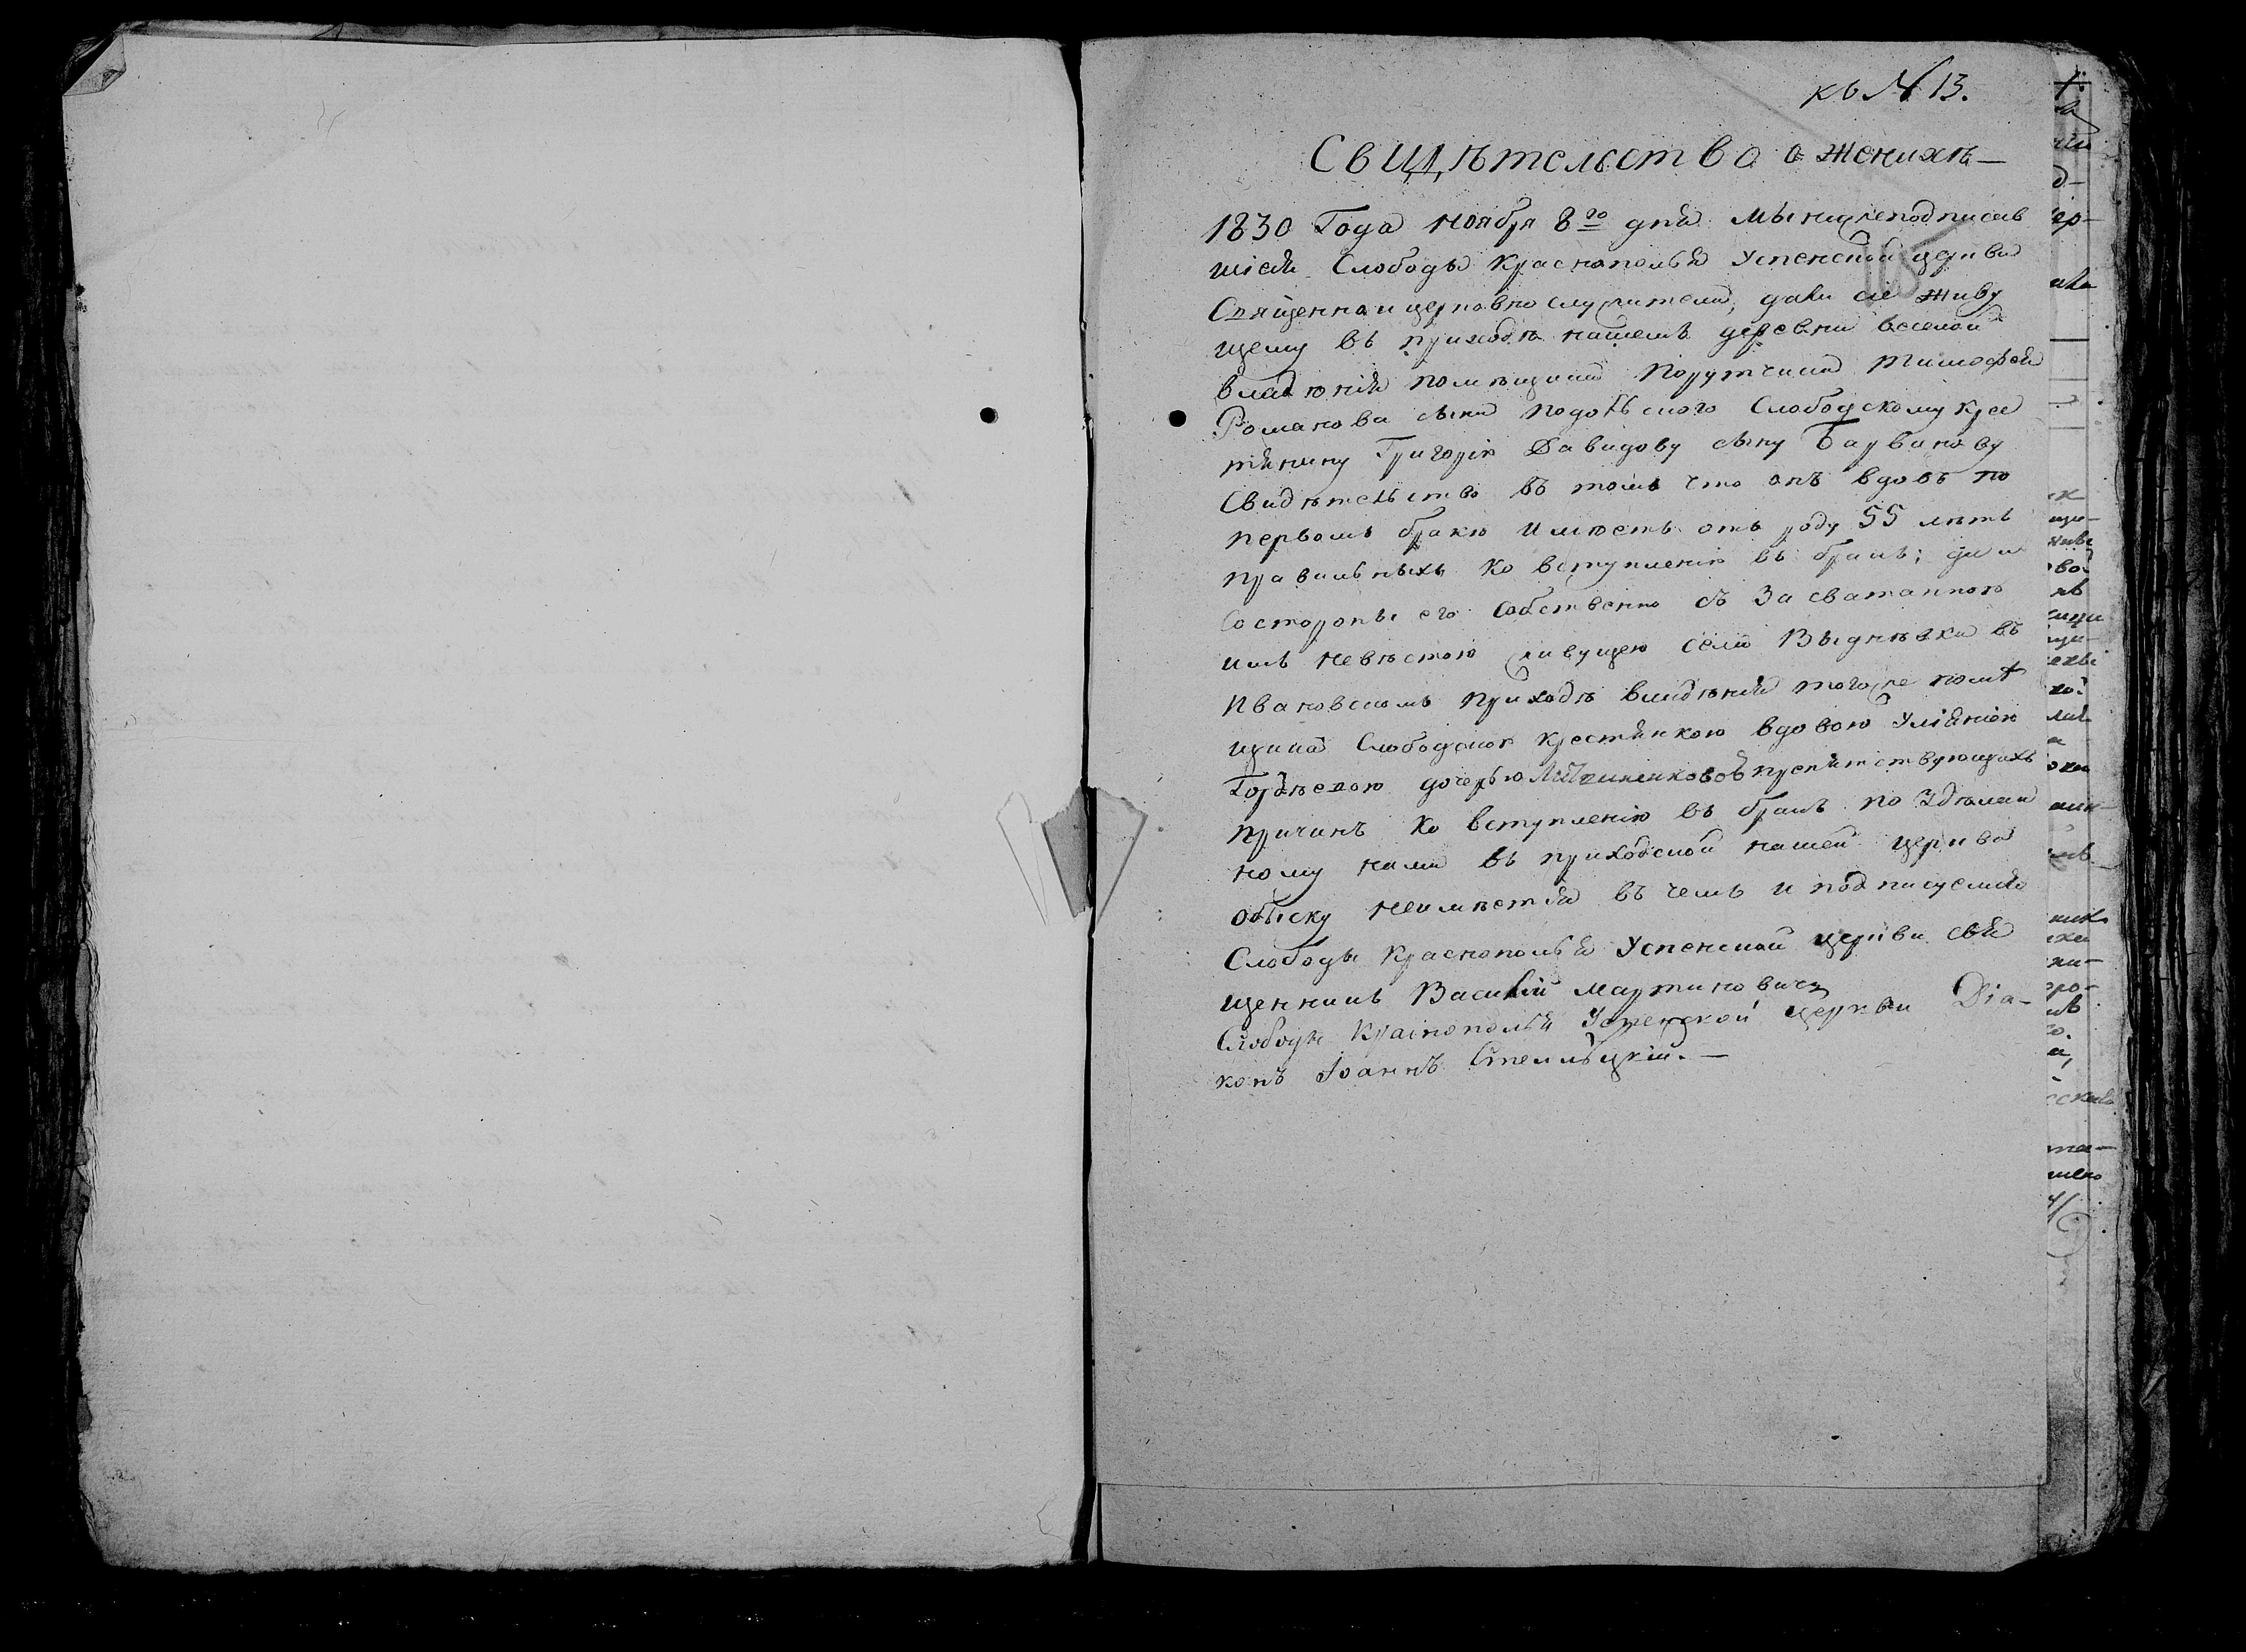 къ № 13.
Свидѣтельство о женихѣ
1830 Года Ноября 8го дня мы нижеподписав
шіея Слободы Краснополья Успенской церкви
Священно и церковно служители, дали сіе живу
щему въ приходѣ нашемъ деревни веселой
владѣнія помѣщика Порутчика Тимофея
Романова сына Подольского Слободскому крес
тянину Григорію Давидову сыну Барвинову
Свидѣтельство въ томъ что онъ вдовъ по
первомъ бракѣ имѣетъ отъ роду 55 лѣтъ
правильныхъ ко вступленію въ бракъ; для
Со стороны его Собственно съ Засватанною
имъ невѣстою живущею села Выднѣвки въ
Ивановскомъ приходѣ владѣнія тогоже помѣ
щика Слободскою крестянкою вдовою Уліяніею
Гордѣевою дочерью препятствующихъ
причинъ Ко вступленію въ бракъ по Здѣлан
ному нами въ приходской нашей церкви
обыску неимѣетъя въ чемъ и подписуемся
Слободы Краснополья Успенской церкви свя
щенникъ Василій Мартиновичъ
Слободы Краснополья Успенской церкви Діа-
конъ Іоаннъ Стеллѣцкій.